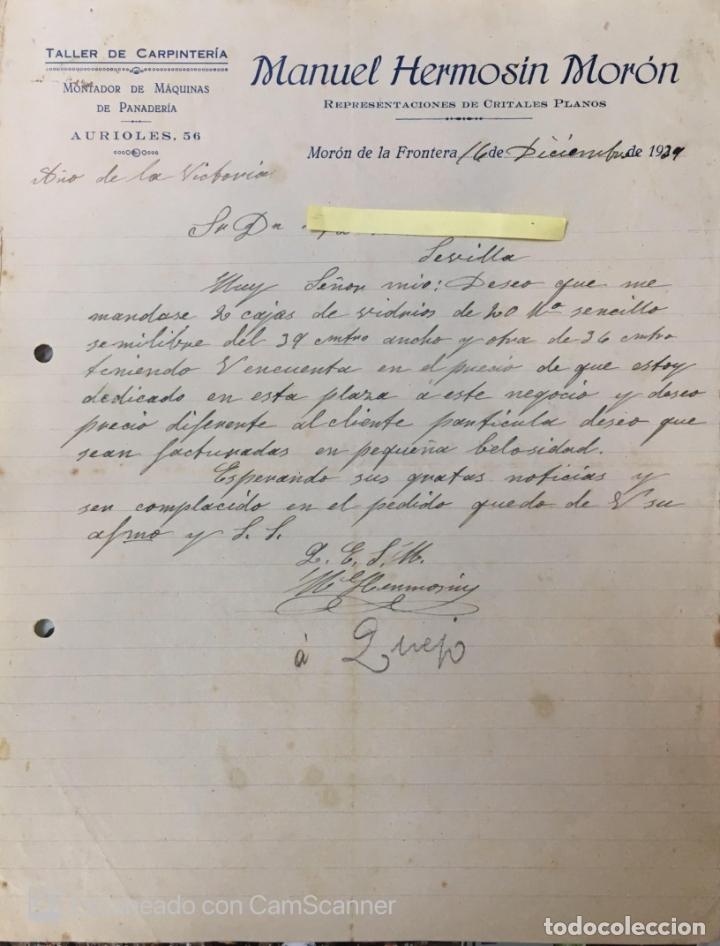 TALLER DE CARPINTERÍA
MONTADOR DE MÁQUINAS
DE PANADERÍA
AURIOLES, 56
Manuel Hermosín Morón
REPRESENTACIONES DE CRITALES PLANOS
Morón de la Frontera 16 de Diciembre de 1939
Año de la Victoria
Sr Dn
Sevilla
Muy Señor mio: Deseo que me
mandase 2 cajas de vidrios de 20 Mª sencillo
semilibre del 39 cmtro ancho y otra de 36 cmtro
teniendo V encuenta en el precio de que estoy
dedicado en esta plaza á este negocio y deseo
precio diferente al cliente particula deseo que
sean facturadas en pequeña belosidad.
Esperando sus gratas noticias y
ser complacido en el pedido quedo de V su
afmo y S. S.
Q. E. S. M.
Ml Hermosin
á Quejo
Escaneado con CamScanner
todocoleccion